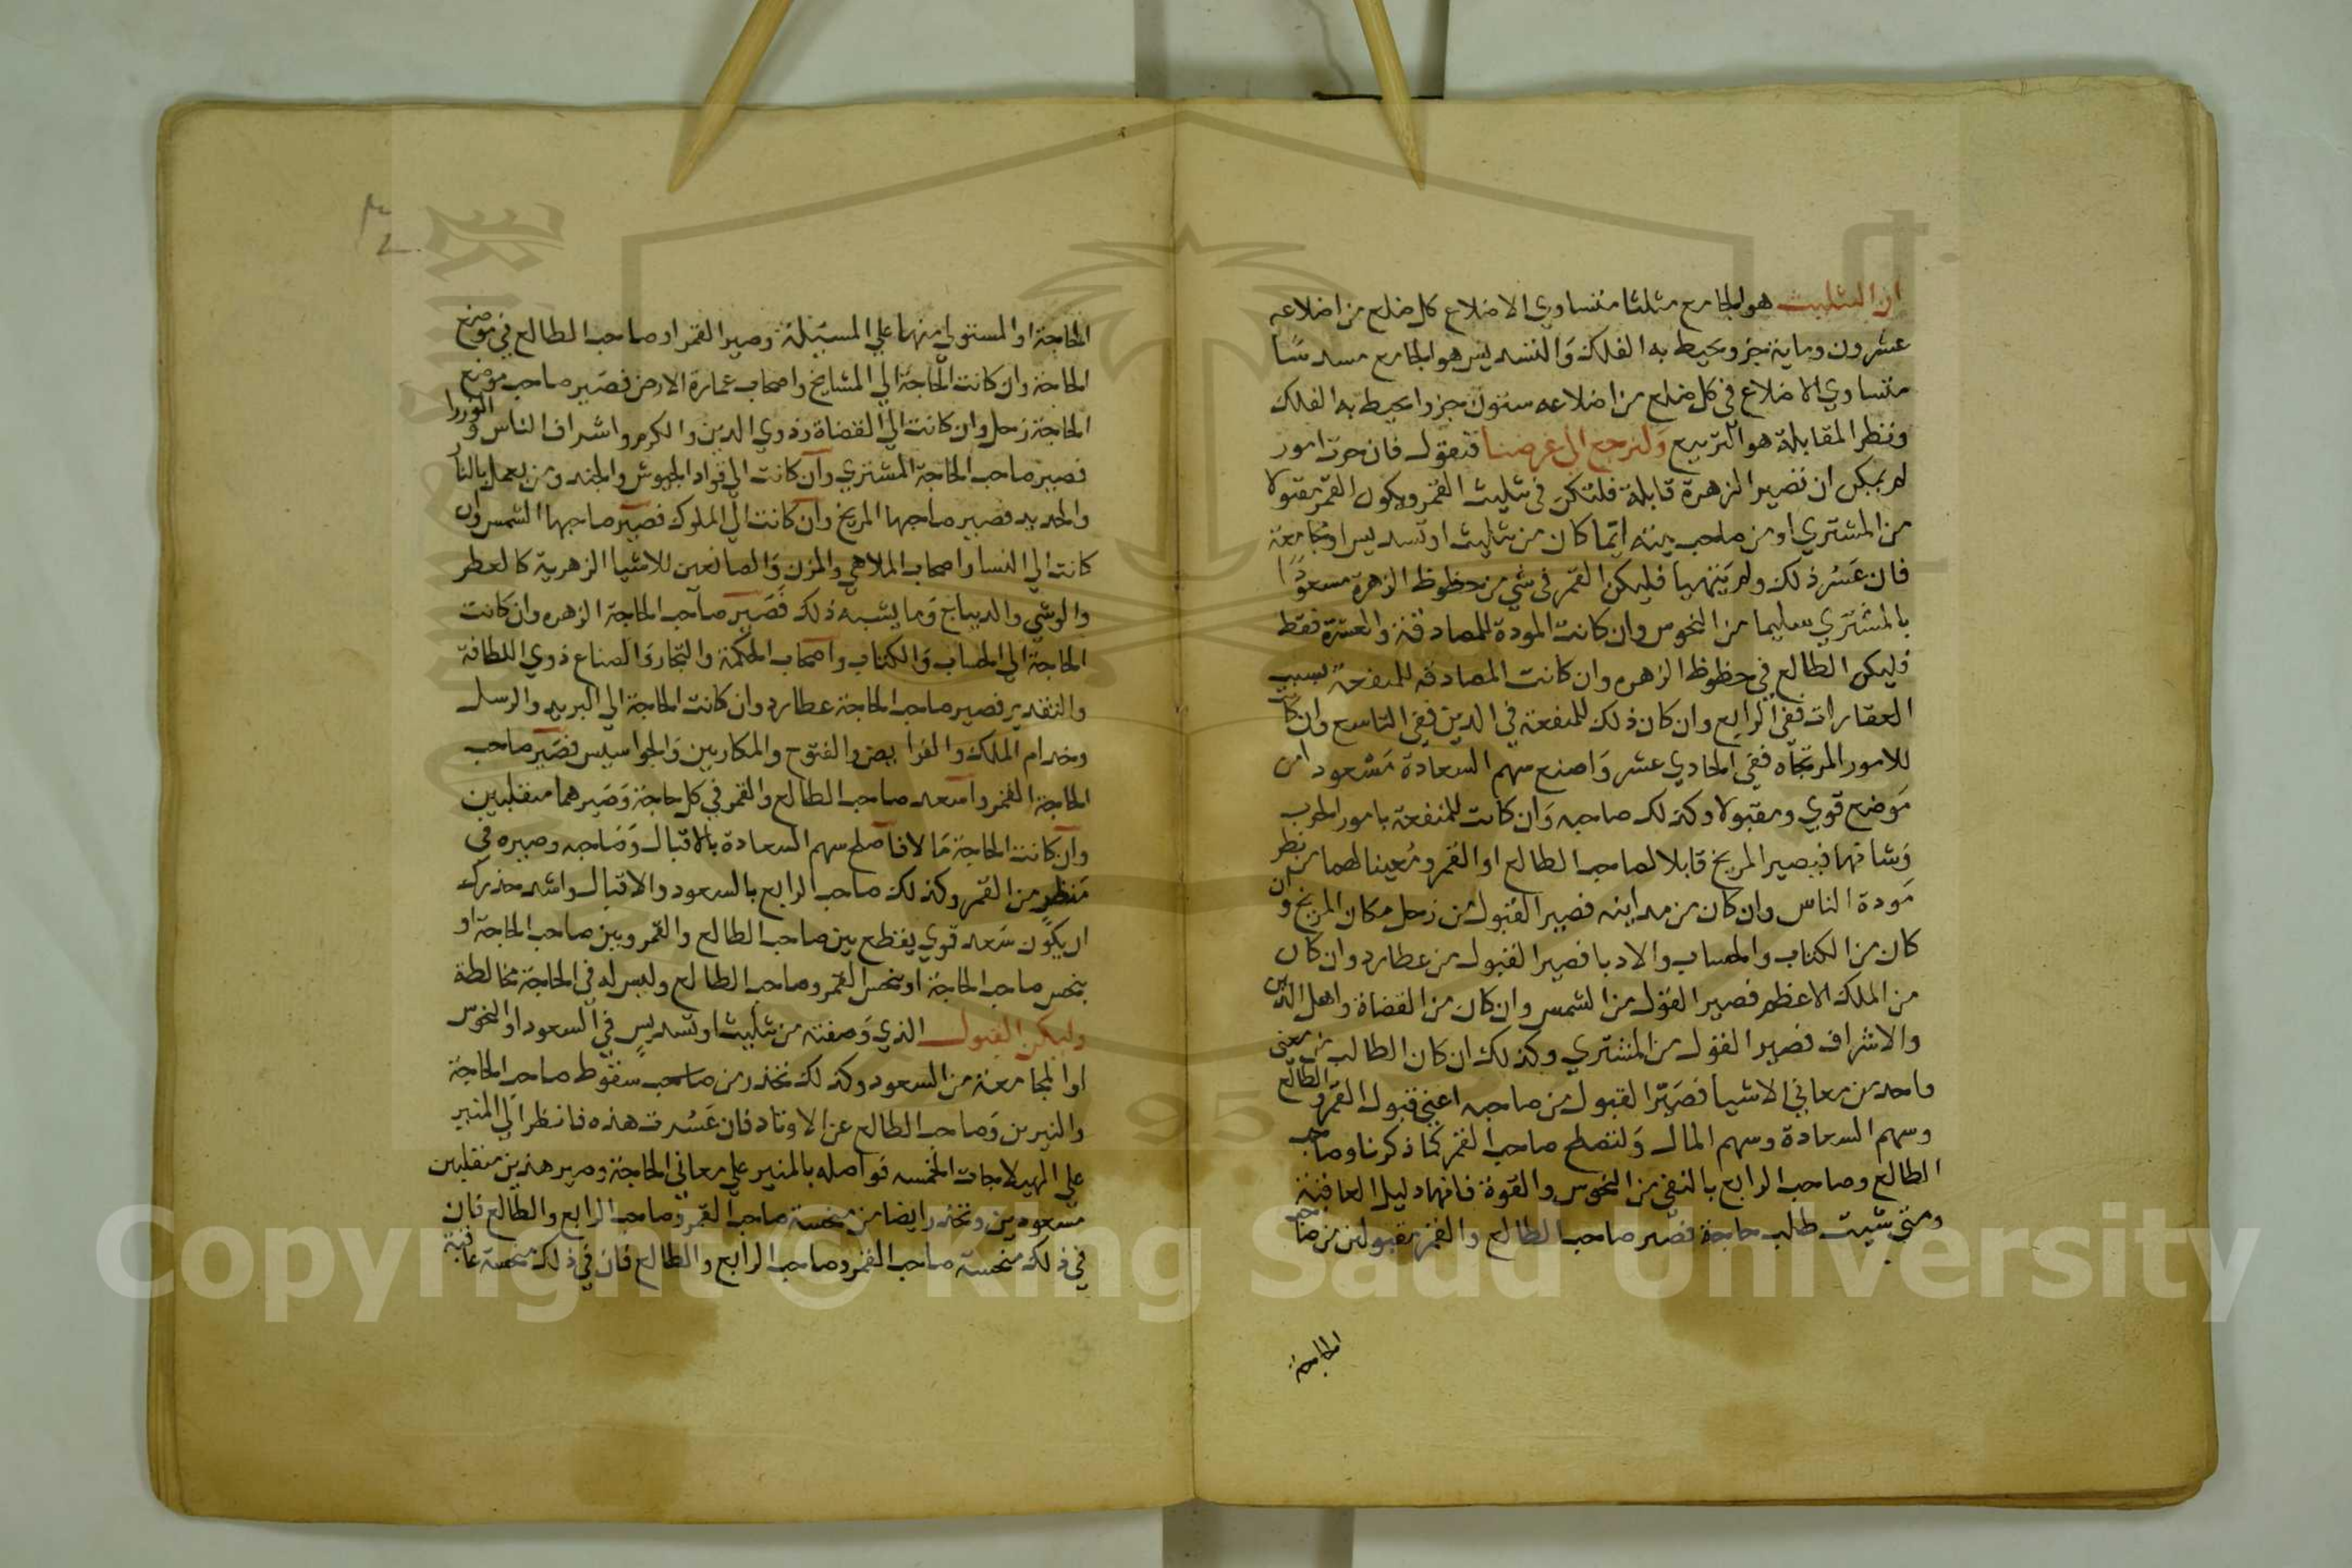 ان التثليث هو الجامع مثلثا متساوي الاضلاع كل ضلع من اضلاعه
عشرون وماية جزو يحيط به الفلك وَالتسديس هو الجامع مسدسًا
متساوي الاضلاع في كل ضلع من اضلاعه ستون جزوا يحيط به الفلك
ونظر المقابلة هو التربيع وَلنرجع الى غرضنا فنقول فان حرت امور
لم يمكن ان تصير الزهرة قابلة فلتكن في تثليث القمر ويكون القمر مقبولا
من المشتري او من صاحب بيته ايّما كان من تثليث او تسديس او مجامعة
فان عَسُر ذلك ولم يَتهيا فليكن القمر في شي من حظوظ الزهرة مسعودًا
بالمشتَري سليما من النحوس وان كانت المودة للمصادقة والعشرة فقط
فليكن الطالع في حظوظ الزهره وان كانت المصادقه للمنفعة بسبب
العقارات ففي الرابع وان كان ذلك للمنفعة في الدين ففي التاسع وان كان
للامور المرتجاه ففي الحادي عشر وَاصنع سهم السعادة مَسْعود امن
مَوضع قوي ومقبولا وكذلك صاحبه وَان كانت للمنفعة بامور الحرب
وَشانها فيصير المريخ قابلا لصاحب الطالع او القمر ومُعينا لهما من نظر
مَودة الناس وان كان من مداينه فصير القبول من زحل مكان المريخ وان
كان من الكتاب والحساب والادبا فصير القبول من عطارد وان كان
من الملك الاعظم فصير القبول من الشمس وان كان من القضاة واهل الدين
والاشراف فصير القبول من المشتري وكذلك ان كان الطالب من معنى
واحد من معاني الاشيا فصَيّر القبول من صاحبه اعني قبول القمر والطالع
وسهم السعادة وسهم المال وَلتصلح صاحب القمر كما ذكرنا وصاحب
الطالع وصاحب الرابع بالنقي من النحوس والقوة فانها دليل العاقبة
ومتى شيت طلب حاجة فصَير صاحب الطالع والقمر مقبولين من صاحب
الحاجة
الحاجة او المستولي منها علي المسئلة وصير القمر او صاحب الطالع في موضع
الحاجة وان كانت الحاجة الي المشايخ واصحاب عمارة الارض فصَير صاحب موضع
الحاجة زحل وان كانت الي القضاة وذوي الدين والكرم واشراف الناس والوزرا
فصير صاحب الحاجة المشتري وان كانت الي قواد الجيوش والجند ومن يعمل بالنار
والحديد فصير صاحبها المريخ وان كانت الي الملوك فصَير صاحبها الشمس وان
كانت الي النسا واصحاب الملاهي والمزن وَالصانعين للاشيا الزهرية كالعطر
والوشي والديباج وَما يشبه ذلك فَصَير صاحب الحاجة الزهره وان كانت
الحاجة الي الحساب وَالكتاب واصحاب الحكمة والتجار وَالصناع ذوي اللطافة
والتقدير فصير صاحب الحاجة عطارد وان كانت الحاجة الي البريد والرسل
وخدام الملك والفرا يض والفتوح والمكاريين وَالجواسيس فصَير صاحب
الحاجة القمر واسعد صاحب الطالع والقمر في كل حاجة وَصَيرهما متقبلين
وان كانت الحاجة مَالا فاصلح سهم السعادة بالاقبال وَصَاحبه وصيره في
مَنظر من القمر وكذلك صاحب الرابع بالسعود والاقبال واشد حذرك
ان يكون سَعد قوي يقطع بين صاحب الطالع والقمر وبين صاحب الحاجة او
ينحس صاحب الحاجة او ينحس القمر وصاحب الطالع وليس له في الحاجة مخالطة
وليكن القبول الذي وَصفته من تثليث او تسديس في السعود او النحوس
او المجامعة من السعود وكذلك تحذر من سقوط صاحب الحاجة
والنيرين وَصاحب الطالع عن الاوتاد فان عَسُرت هذه فانظر الي المنير
علي الهيلاجات الخمسه فواصله بالمنير علي معاني الحاجة وصير هذين متقبلين
مَسعودين وتحذر ايضا من منحسة صاحب القمر وصاحب الرابع والطالع فان
في ذلك منحسة صاحب القمر وصاحب الرابع والطالع فان في ذلك منحسة عاقبة
Copyright © King Saud University